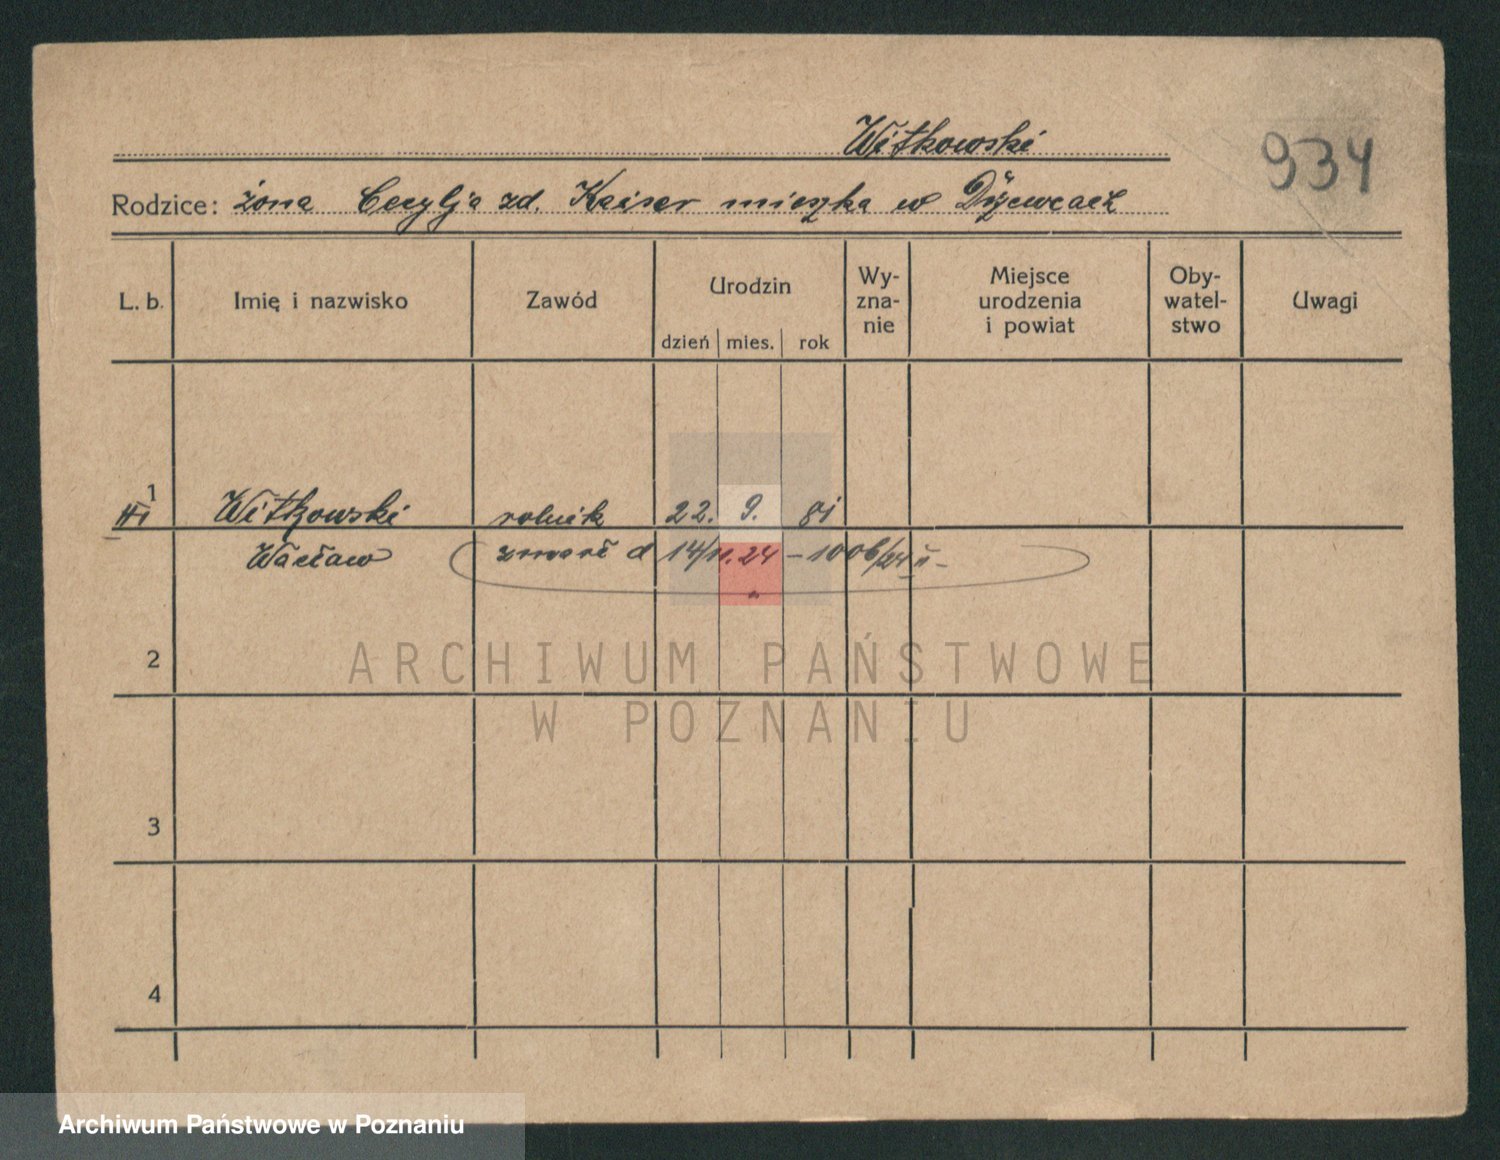 Witkowski
934
Rodzice: żona Cecylja zd. Kaiser mieszka w
L. b. Imię i nazwisko Zawód Urodzin Wy-zna-nie Miejsce urodzenia i powiat Oby-watel-stwo Uwagi
dzień mies. rok
1
Witkowski rolnik 22. 9. 81
Wacław zmarł d 14/11.24 – 1006/24
2
ARCHIWUM PAŃSTWOWE
W POZNANIU
3
4
Archiwum Państwowe w Poznaniu